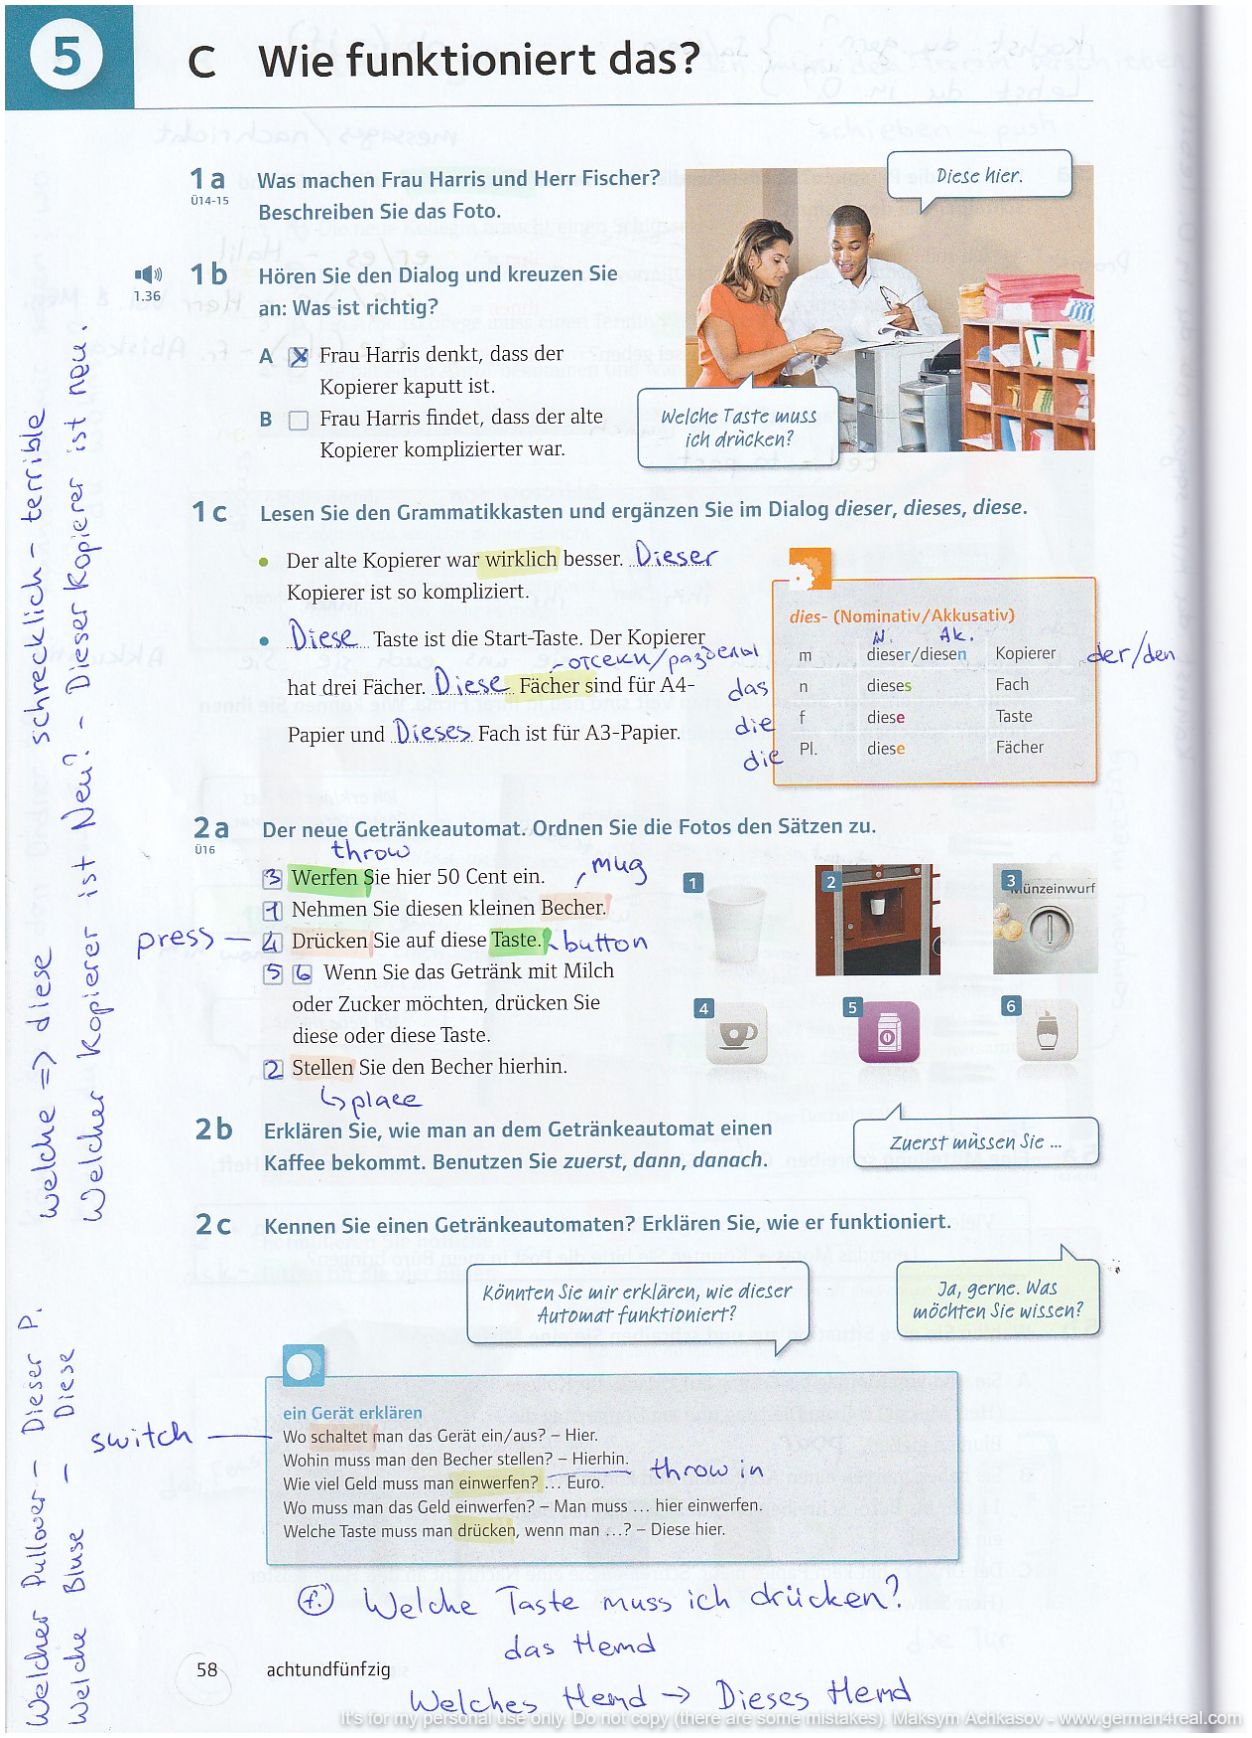 5
C Wie funktioniert das?
1a Was machen Frau Harris und Herr Fischer?
Ü14-15 Beschreiben Sie das Foto.
Diese hier.
Welche Taste muss
ich drücken?
1.36
1b Hören Sie den Dialog und kreuzen Sie
an: Was ist richtig?
A x Frau Harris denkt, dass der
Kopierer kaputt ist.
B Frau Harris findet, dass der alte
Kopierer komplizierter war.
1c Lesen Sie den Grammatikkasten und ergänzen Sie im Dialog dieser, dieses, diese.
Der alte Kopierer war wirklich besser. Dieser
Kopierer ist so kompliziert.
Diese Taste ist die Start-Taste. Der Kopierer
- отсеки/разделы
hat drei Fächer. Diese Fächer sind für A4-
Papier und Dieses Fach ist für A3-Papier.
dies- (Nominativ/Akkusativ)
N. Ak.
m dieser/diesen Kopierer der/den
das n dieses Fach
die f diese Taste
die Pl. diese Fächer
2a Der neue Getränkeautomat. Ordnen Sie die Fotos den Sätzen zu.
Ü16
throw
3 Werfen Sie hier 50 Cent ein.
mug
1 Nehmen Sie diesen kleinen Becher.
press — 4 Drücken Sie auf diese Taste. button
5 6 Wenn Sie das Getränk mit Milch
oder Zucker möchten, drücken Sie
diese oder diese Taste.
2 Stellen Sie den Becher hierhin.
place
1
2
3
Münzeinwurf
4
5
6
2b Erklären Sie, wie man an dem Getränkeautomat einen
Kaffee bekommt. Benutzen Sie zuerst, dann, danach.
Zuerst müssen Sie ...
2c Kennen Sie einen Getränkeautomaten? Erklären Sie, wie er funktioniert.
Könnten Sie mir erklären, wie dieser
Automat funktioniert?
Ja, gerne. Was
möchten Sie wissen?
ein Gerät erklären
switch — Wo schaltet man das Gerät ein/aus? – Hier.
Wohin muss man den Becher stellen? – Hierhin.
Wie viel Geld muss man einwerfen? ... Euro. throw in
Wo muss man das Geld einwerfen? – Man muss ... hier einwerfen.
Welche Taste muss man drücken, wenn man ...? – Diese hier.
f. Welche Taste muss ich drücken?
das Hemd
Welches Hemd → Dieses Hemd
58 achtundfünfzig
welche => diese schrecklich - terrible
Welcher Kopierer ist Neu? - Dieser Kopierer ist neu.
Welcher Pullover - Dieser P.
Welche Bluse - Diese
It's for my personal use only. Do not copy (there are some mistakes). Maksym Achkasov - www.german4real.com